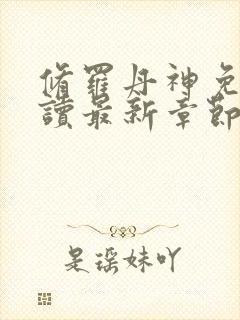 脩羅丹神免
讀最新章節
是瑤妹吖